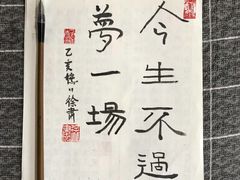 今生不過
夢一場
乙亥
徐書